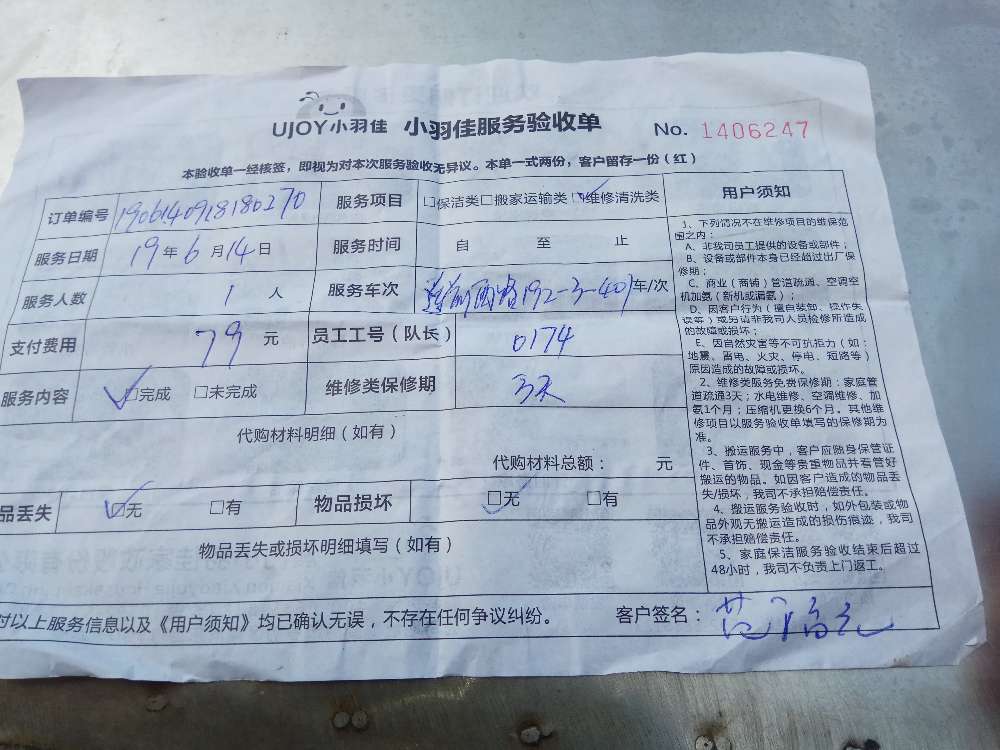 UJOY小羽佳 小羽佳服务验收单 No. 1406247
本验收单一经核签，即视为对本次服务验收无异议。本单一式两份，客户留存一份（红）
订单编号 1906140918180270 服务项目 □保洁类□搬家运输类☑维修清洗类
服务日期 19年6月14日 服务时间 自 至 止
服务人数 1 人 服务车次 192-3-401 车/次
支付费用 79 元 员工工号（队长） 0174
服务内容 ☑完成 □未完成 维修类保修期 3天
代购材料明细（如有）
代购材料总额： 元
品丢失 ☑无 □有 物品损坏 ☑无 □有
物品丢失或损坏明细填写（如有）
对以上服务信息以及《用户须知》均已确认无误，不存在任何争议纠纷。 客户签名：
用户须知
1、下列情况不在维修项目的维保范
围之内：
A、非我司员工提供的设备或部件；
B、设备或部件本身已经超过出厂保
修期；
C、商业（商铺）管道疏通、空调空
机加氨（新机或漏氨）；
D、因客户行为（擅自装卸、操作失
误等）或另请非我司人员检修所造成
的故障或损坏；
E、因自然灾害等不可抗拒力（如：
地震、雷电、火灾、停电、短路等）
原因造成的故障或损坏。
2、维修类服务免费保修期：家庭管
道疏通3天；水电维修、空调维修、加
氨1个月；压缩机更换6个月。其他维
修项目以服务验收单填写的保修期为
准。
3、搬运服务中，客户应随身保管证
件、首饰、现金等贵重物品并看管好
搬运的物品。如因客户造成的物品丢
失/损坏，我司不承担赔偿责任。
4、搬运服务验收时，如外包装或物
品外观无搬运造成的损伤痕迹，我司
不承担赔偿责任。
5、家庭保洁服务验收结束后超过
48小时，我司不负责上门返工。